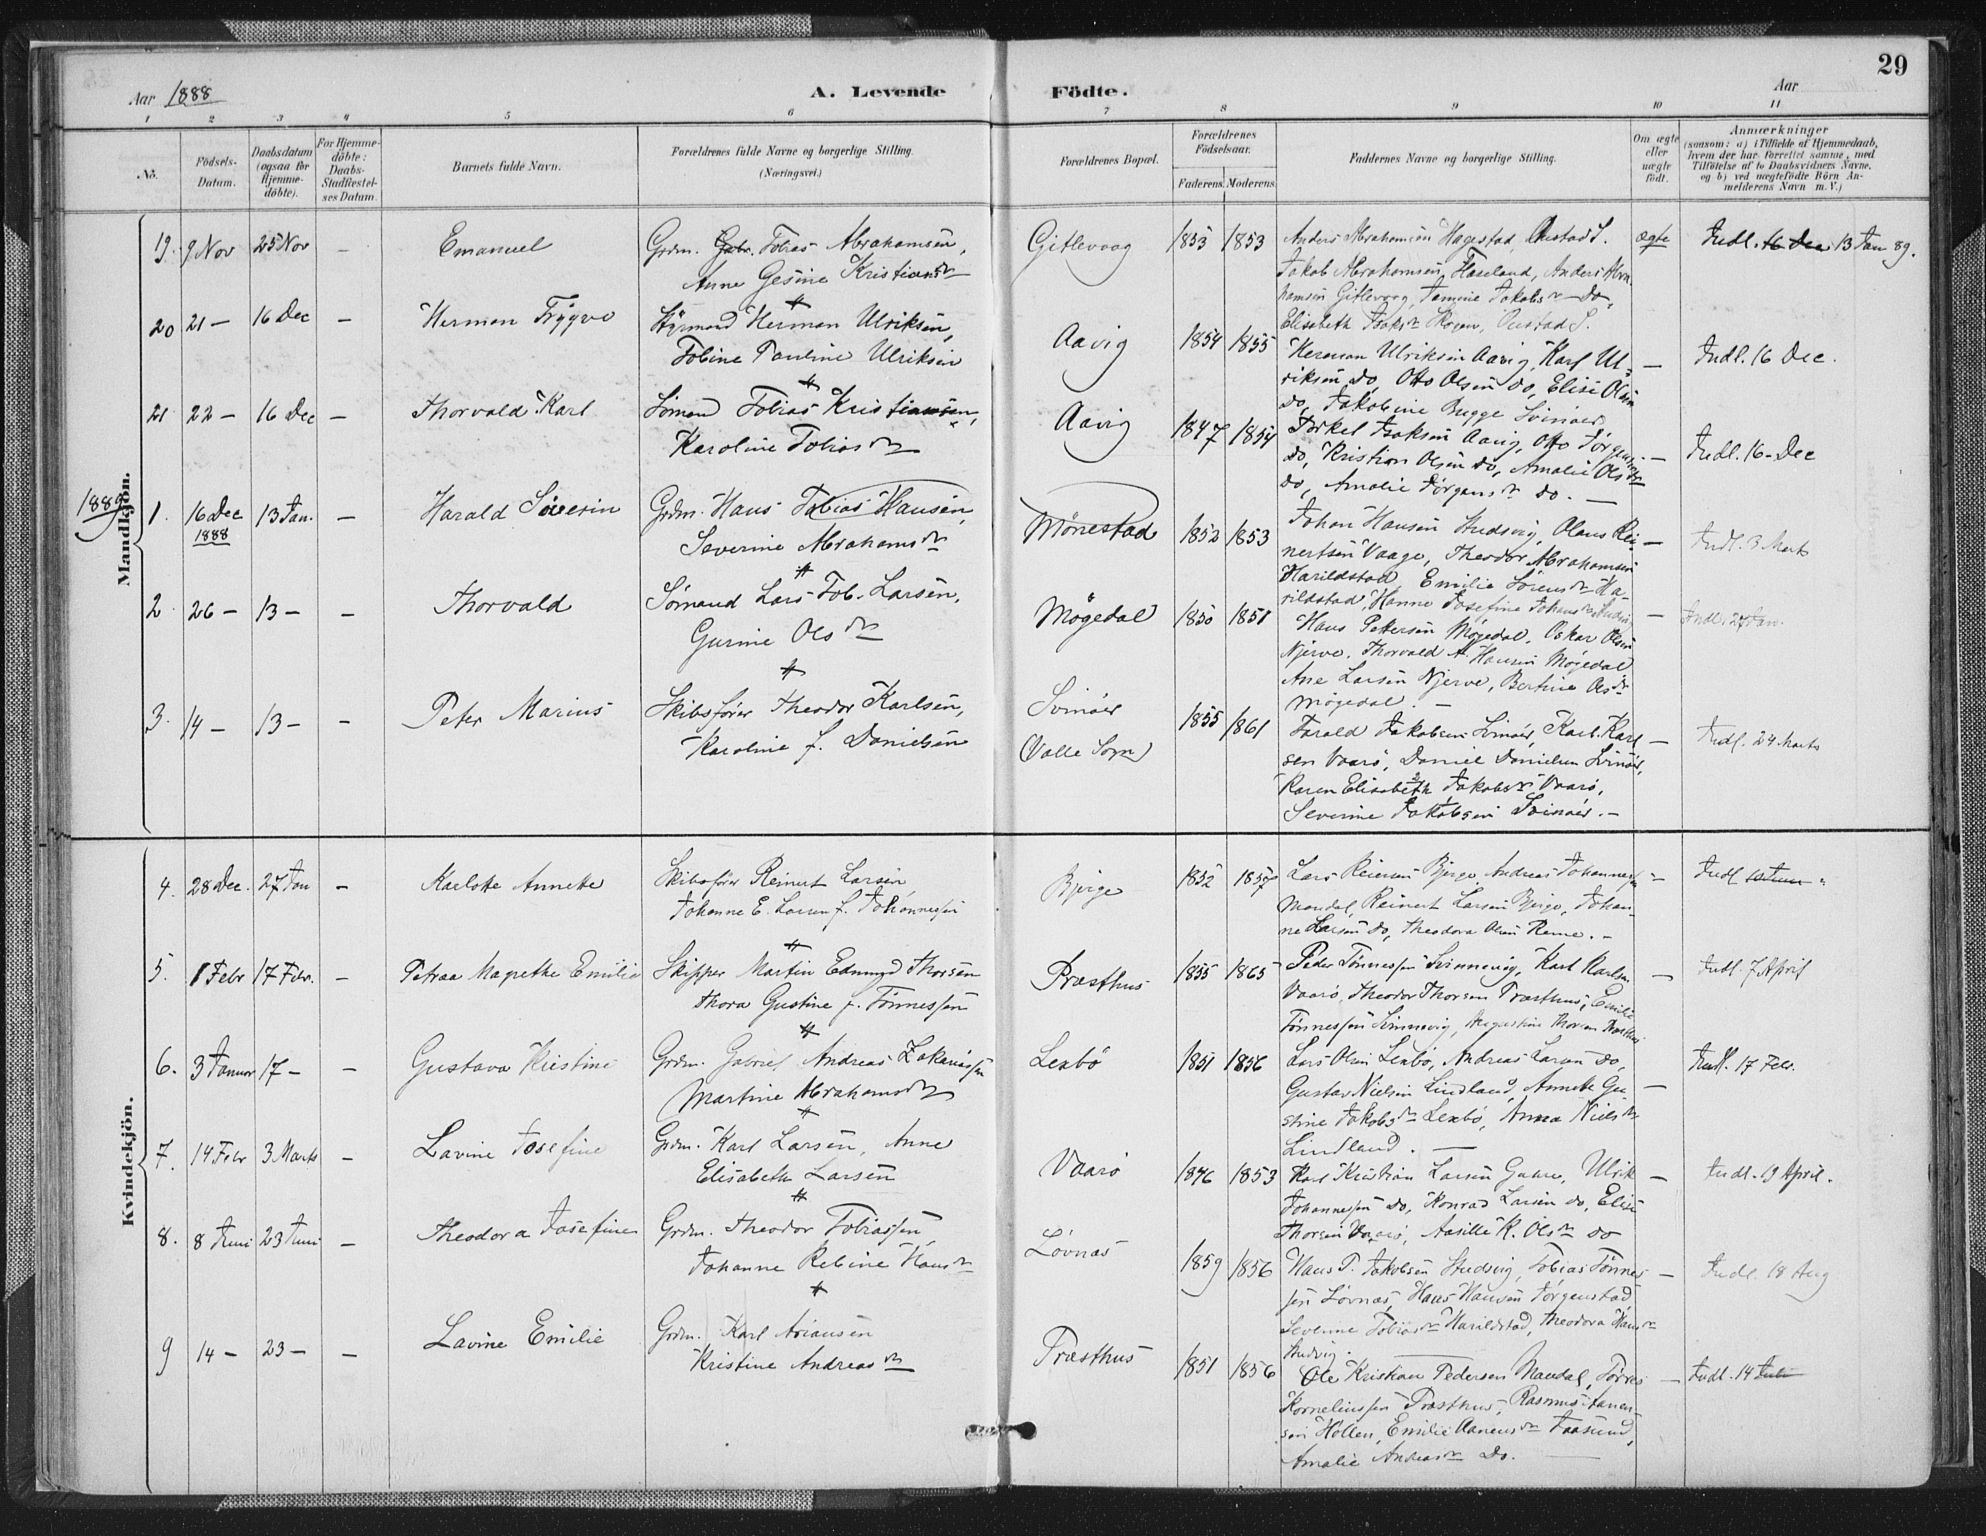 29
Aar 1888
A. Levende Födte.
Aar
1 2 3 4 5 6 7 8 9 10 11
No.
Födsels-Datum.
Daabsdatum (ogsaa for Hjemme-döbte).
For Hjemme-döbte: Daabs-Stadfæstel-ses Datum.
Barnets fulde Navn.
Forældrenes fulde Navne og borgerlige Stilling. (Næringsvei.)
Forældrenes Bopæl.
Forældrenes Födselsaar.
Faderens. Moderens.
Faddernes Navne og borgerlige Stilling.
Om ægte eller uægte födt.
Anmærkninger
(saasom: a) i Tilfælde af Hjemmedaab, hvem der har forrettet samme, med Tilföielse af to Daabsvidners Navne, og b) ved uægtefödte Börn An-melderens Navn m. V.)
Mandkjön.
19. 9 Nov 25 Nov - Emanuel
Grdm. Gabr. Tobias Abrahamsen,
Anne Gesine Kristiansdr
Gitlevaag 1853 1853
Anders Abrahamsen Hagestad Oustad S.
Jakob Abrahamsen Faseland, Anders Abra-
hamsen Gitlevaag, Tomine Jakobsdr do,
Elisabeth Isaksdr Skogen, Oustad S.
ægte
Indl. 16 Dec 13 Jan 89.
20 21 - 16 Dec - Herman Trygve
Styrmand Herman Ulriksen,
Tobine Pauline Ulriksen
Aavig 1854 1855
Herman Ulriksen Aavig, Karl Ul-
riksen do, Otto Olsen do, Elise Olsen
do, Jakobine Bugge Svinöer
- Indl. 16 Dec.
21 22 - 16 Dec - Thorvald Karl
Sömand Tobias Kristiansen,
Karoline Tobiasdr
Aavig 1847 1854
Torkel Isaksen Aavig, Otto Jörgensen
do, Kristian Olsen do, Amalie Olsdr
do, Amalie Jörgensdr do. -
- Indl. 16 - Dec
1889
1. 16 Dec 1888 13 Jan. - Harald Severin
Grdm. Hans Tobias Hansen,
Severine Abrahamsdr
Mönestad 1852 1853
Johan Hansen Studsvig, Olaus Rei-
nertsen Vaage, Theodor Abrahamsen
Harildstad, Emilie Sörensdr Ha-
rildstad, Hanne Josefine Johansdr Studsv.
- Indl. 3 Marts
2 26 - 13 - - Thorvald
Sömand Lars Tob. Larsen,
Gurine Olsdr
Mögedal 1850 1851
Hans Pettersen Mögedal, Oskar Olsen
Njerve, Thorvald A. Hansen Mögedal
Ane Larsen Njerve, Bertine Olsdr
Mögedal. -
- Indl. 27 Jan.
3. 14 - 13 - - Peter Marius
Skibsförer Theodor Karlsen,
Karoline f. Danielsen
Svinöer (Valle Sogn) 1855 1861
Tarald Jakobsen Svinöer, Karl Karl-
sen Vaarö, Daniel Danielsen Svinöer,
Karen Elisabeth Jakobsdr Vaarö,
Severine Jakobsen Svinöer. -
- Indl. 24 Marts
Kvindekjön.
4. 28 Dec. 27 Jan - Karlotte Annette
Skibsförer Reinert Larsen
Johanne E. Larsen f. Johannessen
Bjerge 1852 1857
Lars Reiersen Bjerge Andreas Johannessen
Mandal, Reinert Larsen Bjerge, Johan-
ne Larsen do, Theodora Olsen Reme. -
- Indl
5. 1 Febr 17 Febr. - Petraa Magrethe Emilie
Skipper Martin Edmund Thorsen
Thora Gustine f. Tönnessen
Præsthus 1855 1865
Peder Tönnessen Svinnevig, Karl Karlsen
Vaarö, Theodor Thorsen Præsthus, Emilie
Tönnessen Svinnevig, Augustine Thorsen Præsthus
- Indl. 7 April
6. 3 Januar 17 - - Gustava Kristine
Grdm. Gabriel Andreas Zakariassen
Martine Abrahamsdr
Lexbö 1851 1856
Lars Olsen Lexbö, Andreas Larsen do,
Gustav Nielsen Lindland, Annette Gu-
stine Jakobsdr Lexbö, Anna Nielsdr
Lindland. -
- Indl. 17 Febr.
7. 14 Febr 3 Marts - Lavine Josefine
Grdm. Karl Larsen, Anne
Elisabeth Larsen
Vaarö 1846 1853
Karl Kristian Larsen Gahre, Ulrik
Johannessen do, Konrad Larsen do, Elise
Thorsen Vaarö, Aasille K. Olsdr do
- Indl. 19 April.
8. 8 Juni 23 Juni - Theodora Josefine
Grdm. Theodor Tobiassen,
Johanne Rebine Hansdr
Lövnæs 1859 1856
Hans P. Jakobsen Studsvig, Tobias Tönnes-
sen Lövnæs, Hans Hansen Jörgenstad
Severine Tobiasdr Harildstad, Theodora Hansdr
Studsvig.
- Indl. 18 Aug
9 14 - 23 - - Lavine Emilie
Grdm. Karl Ariansen
Kristine Andreasdr
Præsthus 1851 1856
Ole Kristian Pedersen Mandal, Torres
Korneliussen Præsthus, Rasmus Aanen-
sen Hollen, Emilie Aanensdr Faasund,
Amalie Andreasdr Do.
- Indl. 14 Juli